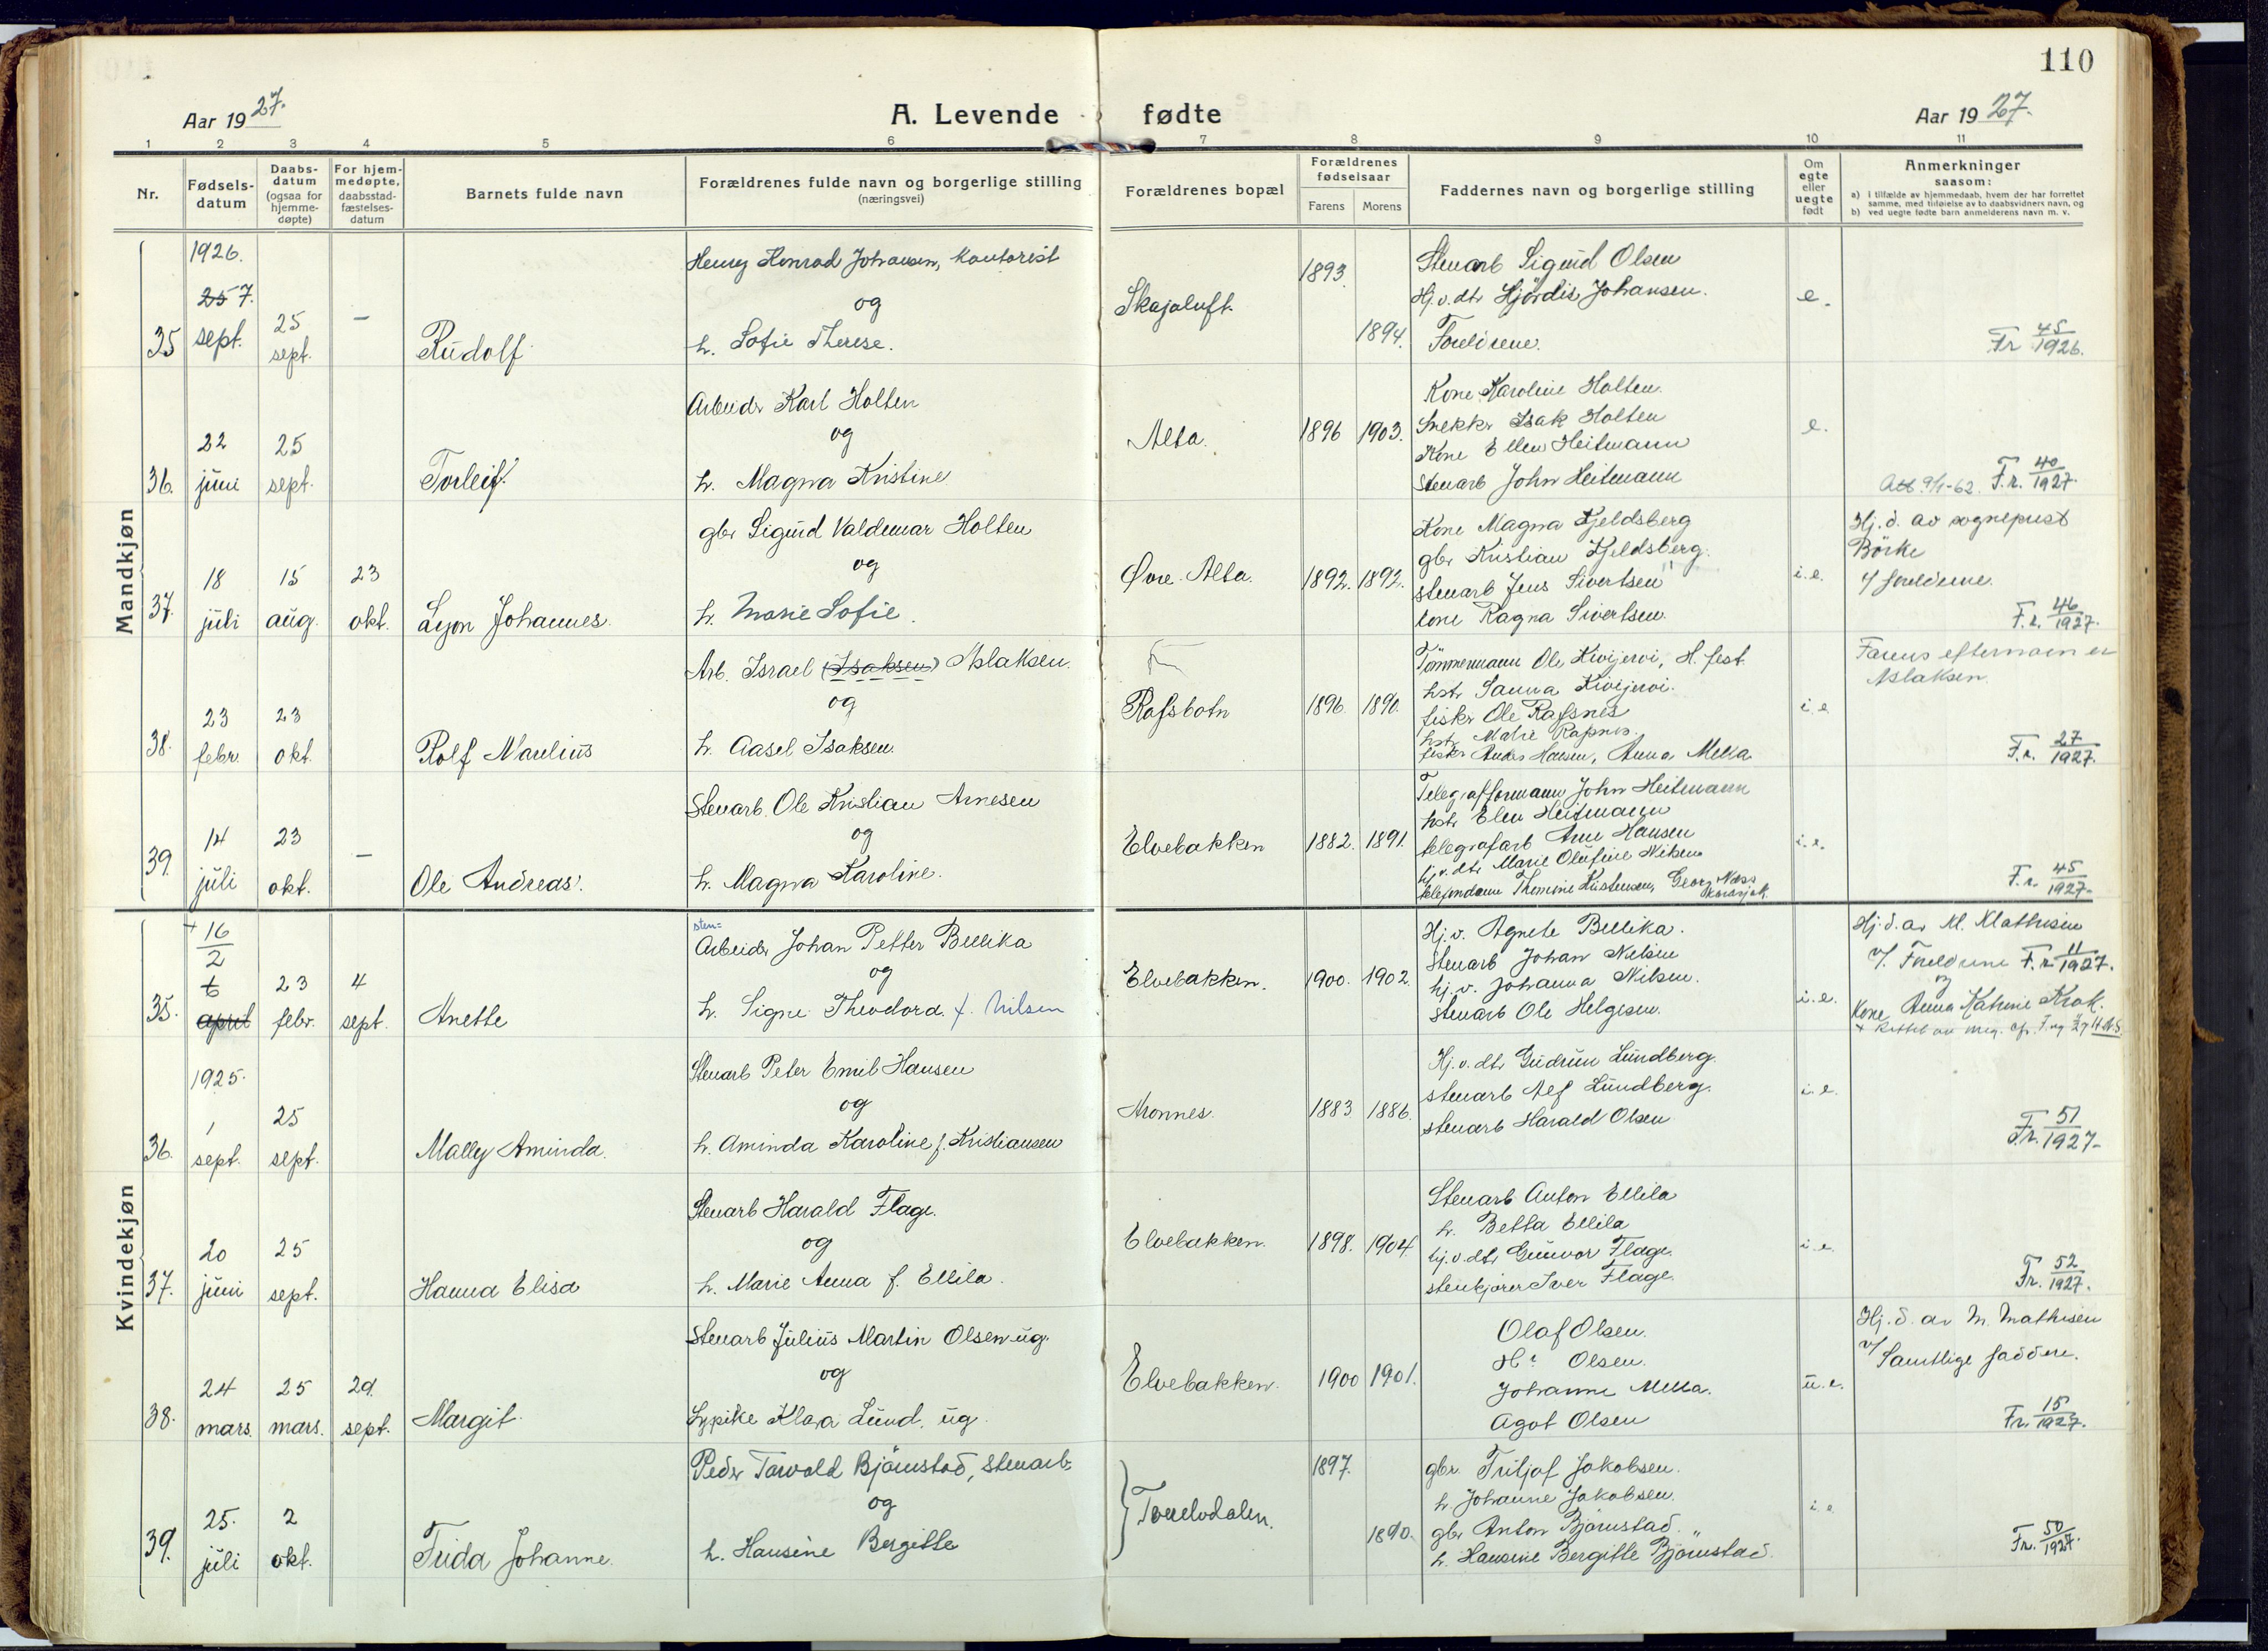 110
Aar 1927.
A. Levende fødte
Aar 1927.
1 2 3 4 5 6 7 8 9 10 11
Nr.
Fødsels-
datum
Daabs-
datum
(ogsaa for
hjemme-
døpte)
For hjem-
medøpte,
daabsstad-
fæstelses-
datum
Barnets fulde navn
Forældrenes fulde navn og borgerlige stilling
(næringsvei)
Forældrenes bopæl
Forældrenes
fødselsaar
Farens Morens
Faddernes navn og borgerlige stilling
Om
egte
eller
uegte
født
Anmerkninger
saasom:
a) i tilfælde av hjemmedaab, hvem der har forrettet
samme, med tilføielse av to daabsvidners navn, og
b) ved uegte fødte barn anmelderens navn m. v.
Mandkjøn
35
1926.
25 7.
sept.
25
sept.
—
Rudolf
Henry Konrad Johansen, kontorist
og
h. Sofie Therese.
Skajaluft.
1893.
1894.
Stenarb Sigurd Olsen
Hj.v.dtr Hjördis Johansen.
Foreldrene.
e.
Fr 45/1926.
36.
22
juni
25
sept.
Torleif
Arbeidr Karl Holten
og
h. Magna Kristine
Alta.
1896 1903.
Kone Karoline Holten.
Snekkr Isak Holten
Kone Ellen Heitmann
Stenarb John Heitmann
e.
Att 9/1-62. F.r. 40/1927.
37.
18
juli
15
aug.
23
okt.
Lyon Johannes.
gbr Sigurd Valdemar Holten
og
h. Marie Sofie.
Øvre Alta.
1892. 1892.
Kone Magna Kjeldsberg
gbr Kristian Kjeldsberg.
stenarb Jens Sivertsen
kone Ragna Sivertsen.
i.e.
Hj.d. av sogneprest
Börke
v/ foreldrene.
F.r. 46/1927.
38.
23
febr.
23
okt.
Rolf Marelius
Arb. Israel (Isaksen) Aslaksen.
og
h. Aasel Isaksen.
Rafsbotn
1896. 1890.
Tömmermann Ole Kivijervi, H. fest.
hstr Sanna Kivijervi.
fiskr Ole Rafsnes
fiskr Anders Hansen, Anna Mella
i.e.
Farens efternavn er
Aslaksen.
F.r. 27/1927.
39.
14
juli
23
okt.
—
Ole Andreas.
Stenarb. Ole Kristian Arnesen
og
h. Magna Karoline.
Elvebakken
1882. 1891.
Telegrafformann John Heitmann
hstr Elen Heitmann
telegrafarb Arne Hansen
hj.v.dtr Marie Olufine Nilsen
Georg Næss
i.e.
F.r. 45/1927.
Kvindekjøn
35.
+ 16/2
6
april
23
febr.
4
sept.
Anette
sten=
Arbeidr Johan Petter Bullika
og
h. Signe Theodora. f. Nilsen
Elvebakken.
1900. 1902.
Hj.v. Agnete Bullika.
Stenarb Johan Nilsen
hj.v. Johanna Nilsen.
Stenarb Ole Helgesen.
i.e.
Hj.d. av M. Mathisen
v/. Foreldrene F.r. 11/1927.
og
Kone Anna Katrine Krok.
36.
1925.
1
sept.
25
sept.
Mally Aminda.
Stenarb Peter Emil Hansen
og
h. Aminda Karoline f. Kristiansen
Aronnes.
1883 1886.
Hj.v.dtr Gudrun Lundberg.
stenarb Alf Lundberg.
stenarb Harald Olsen
i.e.
Fr. 51/1927-
37.
20
juni
25
sept.
Hanna Elisa
Stenarb Harald Flage.
og
h. Marie Anna f. Ellila.
Elvebakken.
1898. 1904.
Stenarb Anton Ellila
h. Betta Ellila
hj.v.dtr Gunvor Flage.
stenkjører Iver Flage.
i.e.
Fr. 52/1927.
38.
24
mars.
25
mars.
29.
sept.
Margit.
Stenarb Julius Martin Olsen ug.
og
Sypike Klara Lund. ug.
Elvebakken.
1900 1901.
Olaf Olsen.
Hr Olsen.
Johanne Mella.
Agot Olsen
u.e.
Hj.d. av M. Mathisen
v/ Samtlige faddere.
Fr. 15/1927.
39.
25.
juli
2
okt.
Frida Johanne.
Peder Torvald Björnstad, stenarb
og
h. Hansine Bergitte
Tverelvdalen.
1897.
1890.
gbr. Fritjof Jakobsen.
h. Johanne Jakobsen.
gbr Anton Björnstad.
h. Hansine Bergitte Björnstad.
i.e.
Fr. 50/1927.